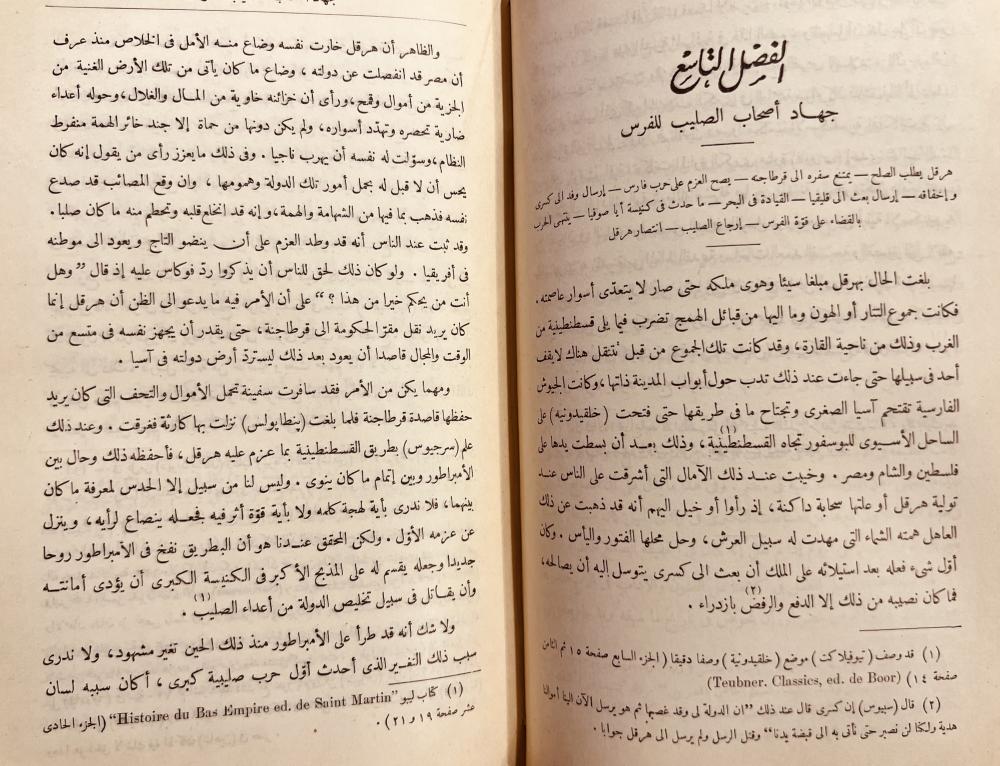 الفصل التاسع
جهاد أصحاب الصليب للفرس
هرقل يطلب الصلح — يمتنع سفره الى قرطاجنه — يصح العزم على حرب فارس — إرسال وفد الى كسرى
و إخفاقه — إرسال بعث الى قليقيا — القيادة فى البحر — ما حدث فى كنيسة أيا صوفيا — ينتهى الحرب
بالقضاء على قوّة الفرس — إرجاع الصليب — انتصار هرقل
بلغت الحال بهرقل مبلغا سيئا وهوى ملكه حتى صار لا يتعدّى أسوار عاصمته.
فكانت جموع التتار أو الهون وما اليها من قبائل الهمج تضرب فيما يلى قسطنطينية من
الغرب وذلك من ناحية القارة، وقد كانت تلك الجموع من قبل تتنقل هناك لا يقف
أحد فى سبيلها حتى جاءت عند ذلك تدب حول أبواب المدينة ذاتها، وكانت الجيوش
الفارسية تقتحم آسيا الصغرى وتجتاح ما فى طريقها حتى فتحت (خلقيدونيه) على
الساحل الأسيوى للبوسفور تجاه القسطنطينية(١)، وذلك بعد أن بسطت يدها على
فلسطين والشام ومصر. وخيبت عند ذلك الآمال التى أشرقت على الناس عند
تولية هرقل أو علتها سحابة داكنة، إذ رأوا أو خيل اليهم أنه قد ذهبت عن ذلك
العاهل همته الشماء التى مهدت له سبيل العرش، وحل محلها الفتور واليأس. وكان
أقل شىء فعله بعد استيلائه على الملك أن بعث الى كسرى يتوسل إليه أن يصالحه،
فما كان نصيبه من ذلك إلا الدفع والرفض بازدراء(٢).
(١) قد وصف (تيوفيلاكت) موضع (خلقيدونية) وصفا دقيقا (الجزء السابع صفحة ١٥ ثم الثامن
صفحة ١٤) (Teubner. Classics, ed. de Boor)
(٢) قال (سبيوس) إن كسرى قال عند ذلك "ان الدولة لى وقد غصبها ثم هو يرسل الآن الينا أموالنا
هدية ولكنا لن نصبر حتى نأتى به الى قبضة يدنا" وقتل الرسل ولم يرسل الى هرقل جوابا.
والظاهر أن هرقل خارت نفسه وضاع منه الأمل فى الخلاص منذ عرف
أن مصر قد انفصلت عن دولته، وضاع ما كان يأتى من تلك الأرض الغنية من
الجزية من أموال وقمح، ورأى أن خزائنه خاوية من المال والغلال، وحوله أعداء
ضارية تحصره وتهدّد أسواره، ولم يكن دونها من حماة إلا جند خائر الهمة منفرط
النظام، وسوّلت له نفسه أن يهرب ناجيا. وفى ذلك ما يعزز رأى من يقول إنه كان
يحس أن لا قبل له بحمل أمور تلك الدولة وهمومها، وان وقع المصائب قد صدع
نفسه فذهب بما فيها من الشهامة والهمة، وإنه قد انخلع قلبه وتحطم منه ما كان صلبا.
وقد ثبت عند الناس أنه قد وطد العزم على أن ينضو التاج ويعود الى موطنه
فى أفريقيا. ولو كان ذلك لحق للناس أن يذكروا ردّ فوكاس عليه إذ قال "وهل
أنت من يحكم خيرا من هذا؟" على أن الأمر فيه ما يدعو الى الظن أن هرقل إنما
كان يريد نقل مقرّ الحكومة الى قرطاجنة، حتى يقدر أن يجهز نفسه فى متسع من
الوقت والمجال قاصدا أن يعود بعد ذلك ليستردّ أرض دولته فى آسيا.
ومهما يكن من الأمر فقد سافرت سفينة تحمل الأموال والتحف التى كان يريد
حفظها قاصدة قرطاجنة فلما بلغت (پنطاپولس) نزلت بها كارثة فغرقت. وعند ذلك
علم (سرجيوس) بطريق القسطنطينية بما عزم عليه هرقل، فأحفظه ذلك وحال بين
الأمبراطور وبين إتمام ما كان ينوى. وليس لنا من سبيل إلا الحدس لمعرفة ما كان
بينهما، فلا ندرى بأية لهجة كلمه ولا بأية قوّة أثر فيه فجعله ينصاع لرأيه، وينزل
عن عزمه الأوّل. ولكن المحقق عندنا هو أن البطريق نفخ فى الأمبراطور روحا
جديدا وجعله يقسم له على المذبح الأكبر فى الكنيسة الكبرى أن يؤدى أمانته
وأن يقاتل فى سبيل تخليص الدولة من أعداء الصليب(١).
ولا شك أنه قد طرأ على الأمبراطور منذ ذلك الحين تغير مشهود، ولا ندرى
سبب ذلك التغير الذى أحدث أوّل حرب صليبية كبرى، أكان سببه لسان
(١) كتاب ليبو "Histoire du Bas Empire ed. de Saint Martin" (الجزء الحادى
عشر صفحة ١٩ و ٢١).